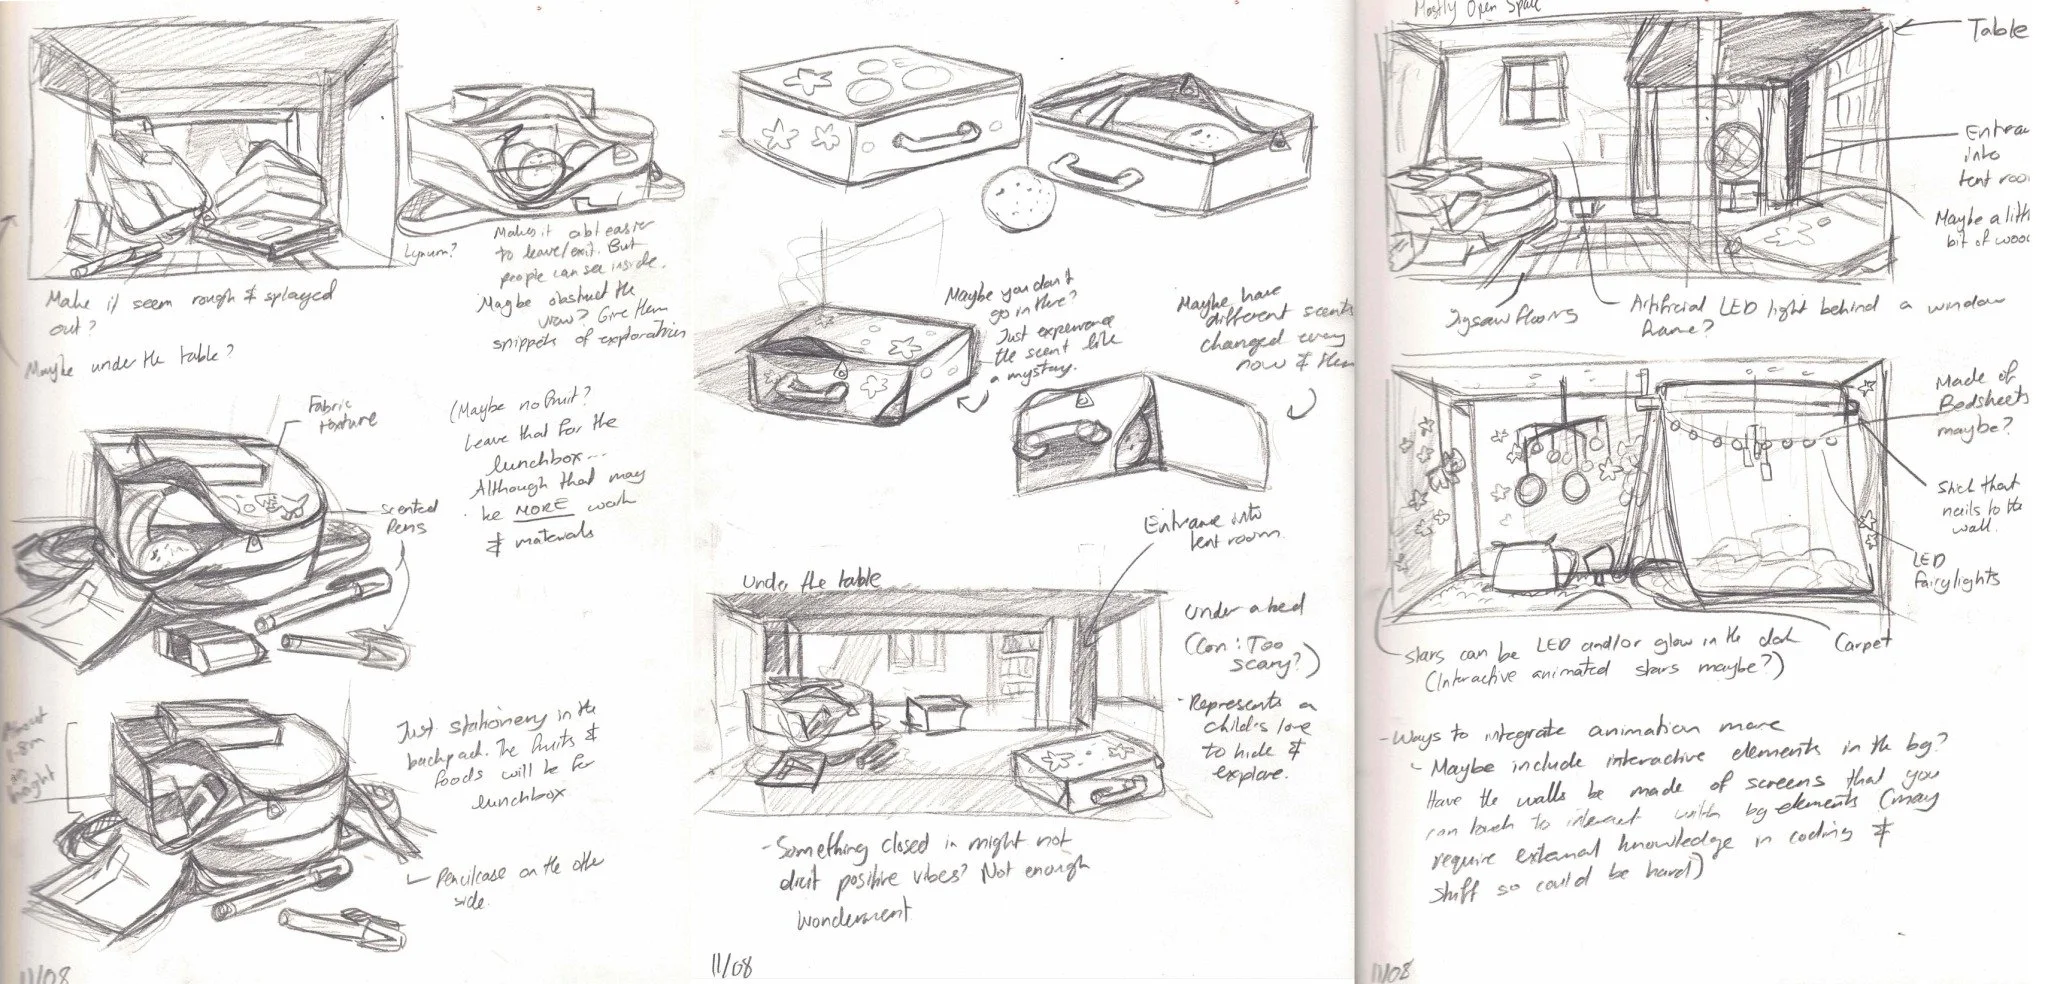 Make it seem rough & splayed
out?
Maybe under the table?
Makes it a bit easier
to leave/exit. But
people can see inside.
Maybe obstruct the
view? Give them
snippets of exploration
Fabric
texture
scented
Pens
(Maybe no fruit?
Leave that for the
lunchbox...
Although that may
be MORE work
& materials
About
1.8m
in
height
Just stationery in the
backpack. The fruits &
foods will be for
lunchbox
Pencilcase on the other
side.
11/08
Maybe you don't
go in there?
Just experience
the scent like
a mystery.
Maybe have
different scents
changed every
now & then
Entrance into
tent room.
Under the table
Under a bed
(Con: Too
scary?)
- Represents a
child's love
to hide &
explore.
- Something closed in might not
elicit positive vibes? Not enough
wonderment
11/08
Mostly Open Space
Table
Entran
into
tent roo
Maybe a littl
bit of wood
Jigsaw floors
Artificial LED light behind a window
frame?
Made of
Bedsheets
maybe?
Stick that
nails to the
wall.
LED
fairylights
Carpet
stars can be LED and/or glow in the dark
(Interactive animated stars maybe?)
- Ways to integrate animation more
Maybe include interactive elements in the bg?
Have the walls be made of screens that you
can touch to interact with bg elements (may
require external knowledge in coding &
stuff so could be hard)
11/08